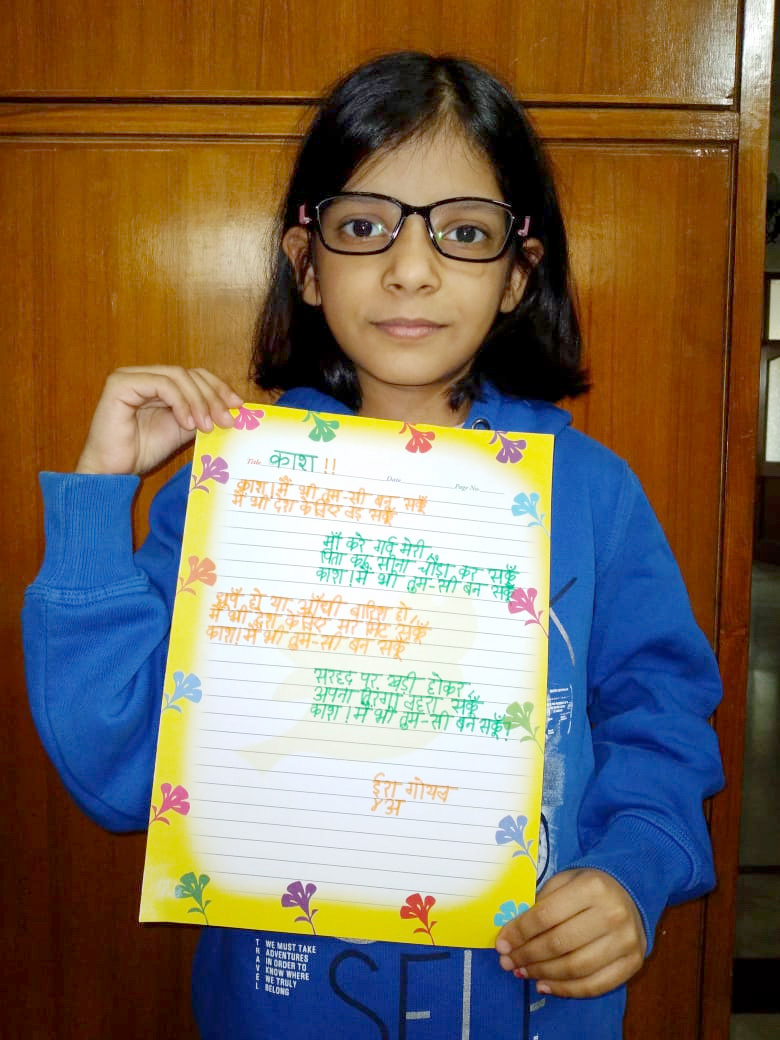 Title काश !!
Date
Page No.
काश ! मैं भी तुम-सी बन सकूँ
मैं भी देश के लिए लड़ सकूँ
माँ करे गर्व मेरी,
पिता का सीना चौड़ा कर सकूँ
काश ! मैं भी तुम-सी बन सकूँ
धूप हो या आँधी बारिश हो,
मैं भी देश के लिए मर मिट सकूँ
काश! मैं भी तुम-सी बन सकूँ
सरहद पर खड़ी होकर,
अपना तिरंगा लहरा सकूँ
काश ! मैं भी तुम-सी बन सकूँ।
ईरा गोयल
४ अ
TRAVEL
WE MUST TAKE
ADVENTURES
IN ORDER TO
KNOW WHERE
WE TRULY
BELONG
SELF